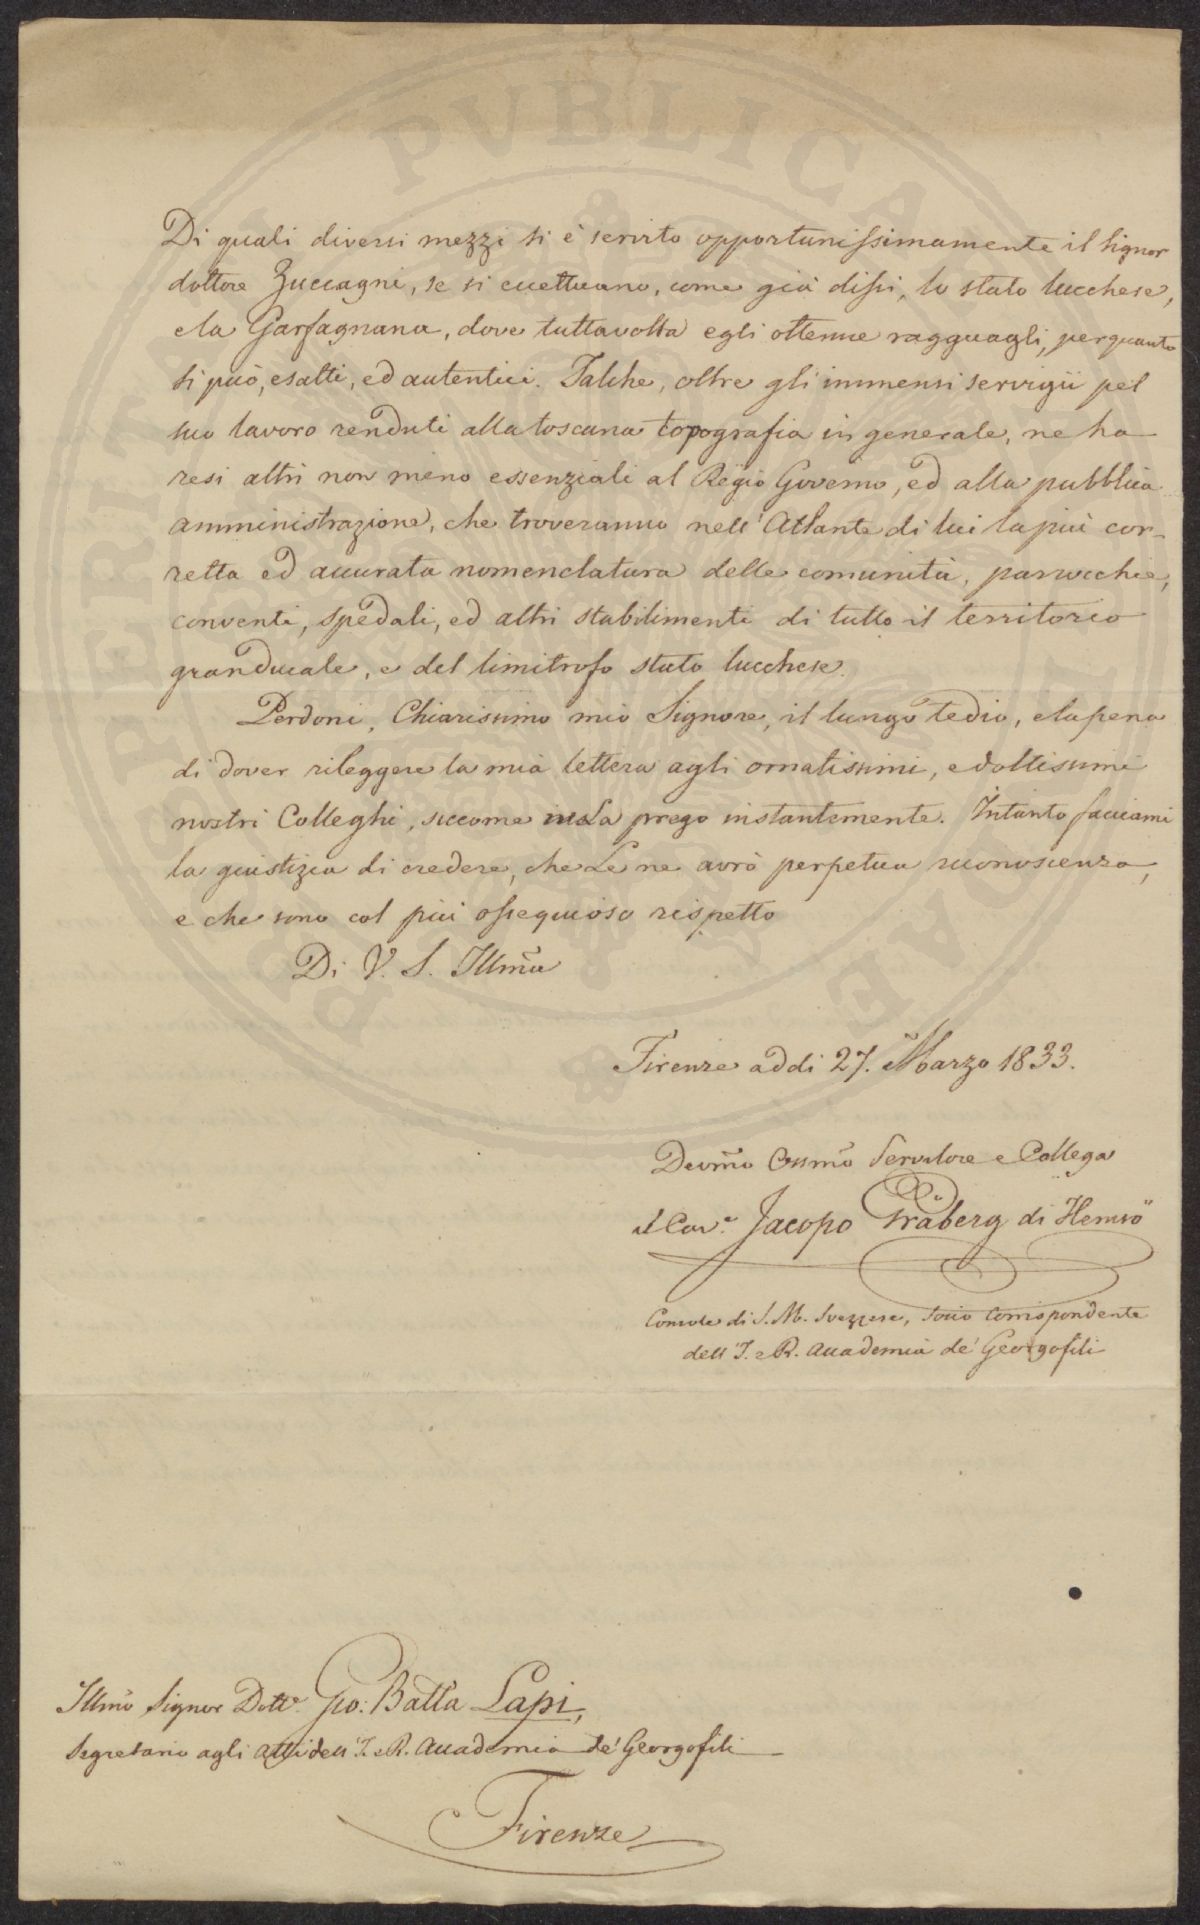 Di quali diversi mezzi si è servito opportunissimamente il Signor
dottore Zuccagni, se si eccettuano, come già dissi, lo stato lucchese,
e la Garfagnana, dove tuttavolta egli ottenne ragguagli, perquanto
si può, esatti, ed autentici. Talche, oltre gli immensi servigii pel
suo lavoro renduti alla toscana topografia in generale, ne ha
resi altri non meno essenziali al Regio Governo, ed alla pubblica
amministrazione, che troveranno nell'Atlante di lui la più cor-
retta ed accurata nomenclatura delle comunità, parrocchie,
conventi, spedali, ed altri stabilimenti di tutto il territorio
granducale, e del limitrofo stato lucchese.
Perdoni, Chiarissimo mio Signore, il lungo tedio, e la pena
di dover rileggere la mia lettera agli ornatissimi, e dottissimi
nostri Colleghi, siccome La prego instantemente. Intanto facciami
la giustizia di credere, che Le ne avrò perpetua riconoscenza,
e che sono col più ossequioso rispetto
Di V. S. Illm̃a
Firenze addi 27. Marzo 1833.
Devm̃o Obsmõ Servitore e Collega
il Cav.e Jacopo Gråberg di Hemsö
Console di S. M. Svezzese, Socio Corrispondente
dell'I. e R. Accademia de' Georgofili
Illmõ Signor Dott.e Gio: Batta Lapi,
Segretario agli atti dell'I. e R. Accademia de' Georgofili
Firenze
PVBLICA